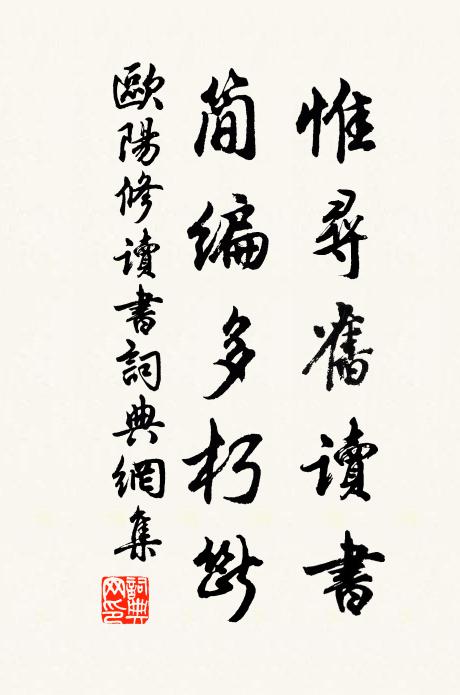 惟尋舊讀書
簡編多朽斷
歐陽修讀書詞典網集
詞典網印